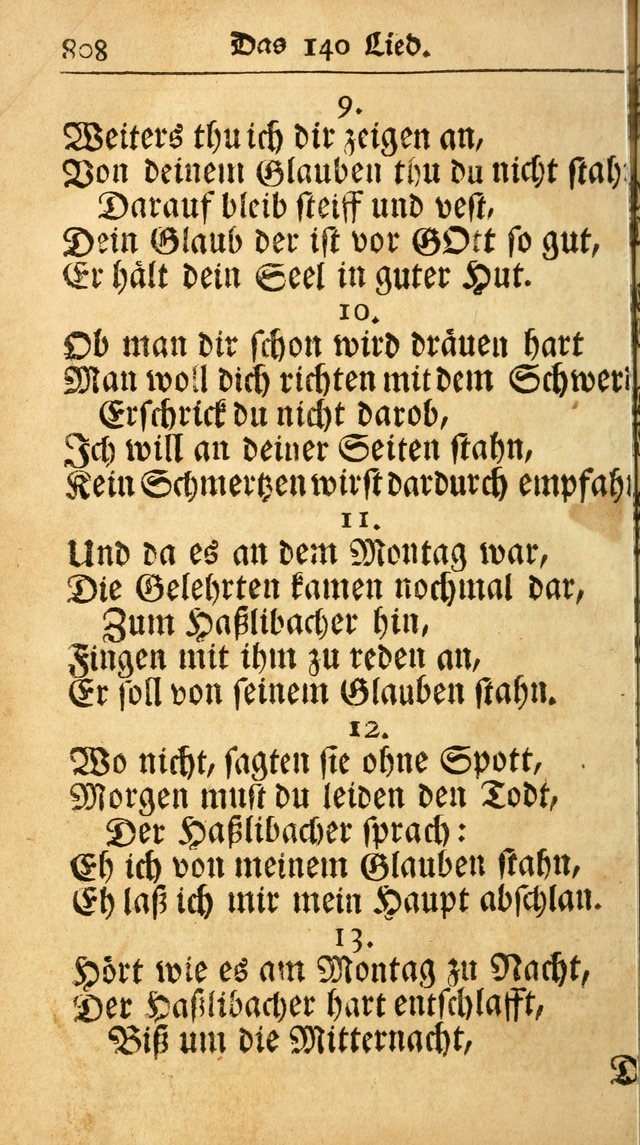 808 Das 140 Lied.
9.
Weiters thu ich dir zeigen an,
Von deinem Glauben thu du nicht stah
Darauf bleib steiff und vest,
Dein Glaub der ist vor GOtt so gut,
Er hält dein Seel in guter Hut.
10.
Ob man dir schon wird dräuen hart
Man woll dich richten mit dem Schwer
Erschrick du nicht darob,
Ich will an deiner Seiten stahn,
Kein Schmertzen wirst dardurch empfah
11.
Und da es an dem Montag war,
Die Gelehrten kamen nochmal dar,
Zum Haßlibacher hin,
Fingen mit ihm zu reden an,
Er soll von seinem Glauben stahn.
12.
Wo nicht, sagten sie ohne Spott,
Morgen must du leiden den Todt,
Der Haßlibacher sprach:
Eh ich von meinem Glauben stahn,
Eh laß ich mir mein Haupt abschlan.
13.
Hört wie es am Montag zu Nacht,
Der Haßlibacher hart entschlafft,
Biß um die Mitternacht,
D